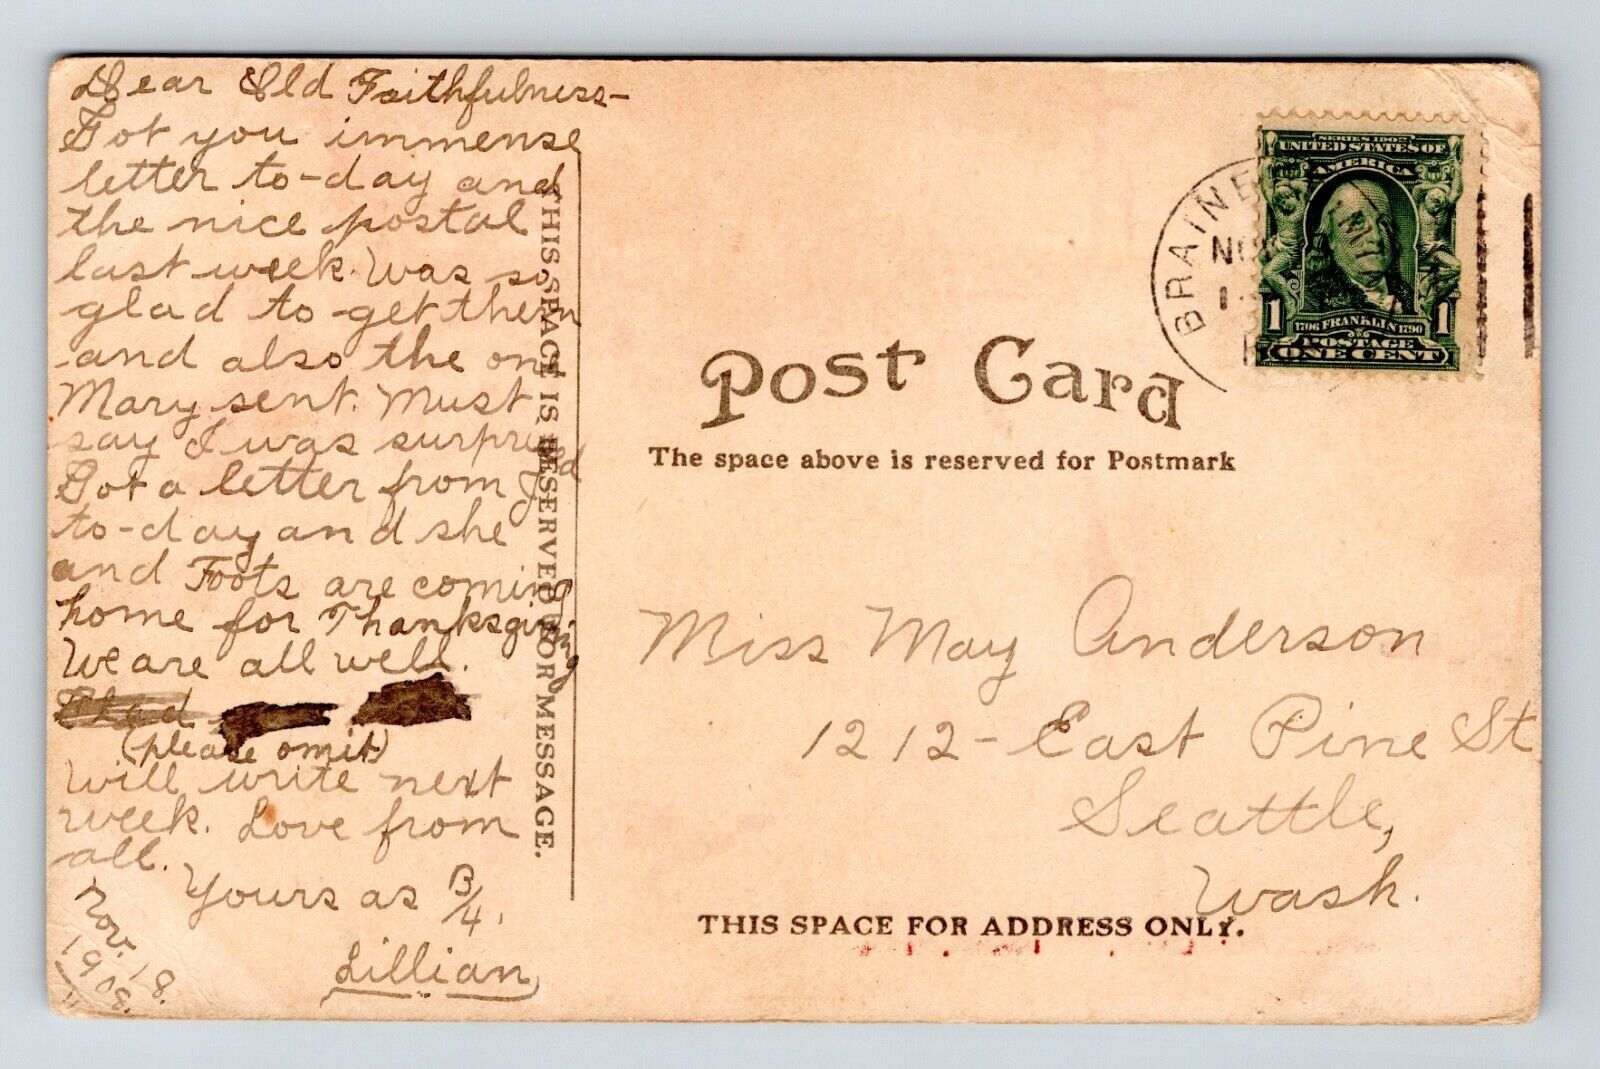 Dear Old Faithfulness-
Got you immense
letter to-day and
the nice postal
last week. Was so
glad to get them
and also the one
Mary sent. Must
say I was surprised
Got a letter from J
to-day and she
and Foots are coming
home for Thanksgiving
We are all well.
(please omit)
will write next
week. Love from
all.
Yours as B/4.
Lillian
Nov. 18.
1908.
THIS SPACE IS RESERVED FOR MESSAGE.
BRAINE
NO
SERIES 1902
UNITED STATES OF
AMERICA
1 1706 FRANKLIN 1790 1
POSTAGE
ONE CENT
Post Card
The space above is reserved for Postmark
Miss May Anderson
1212- East Pine St
Seattle,
Wash.
THIS SPACE FOR ADDRESS ONLY.